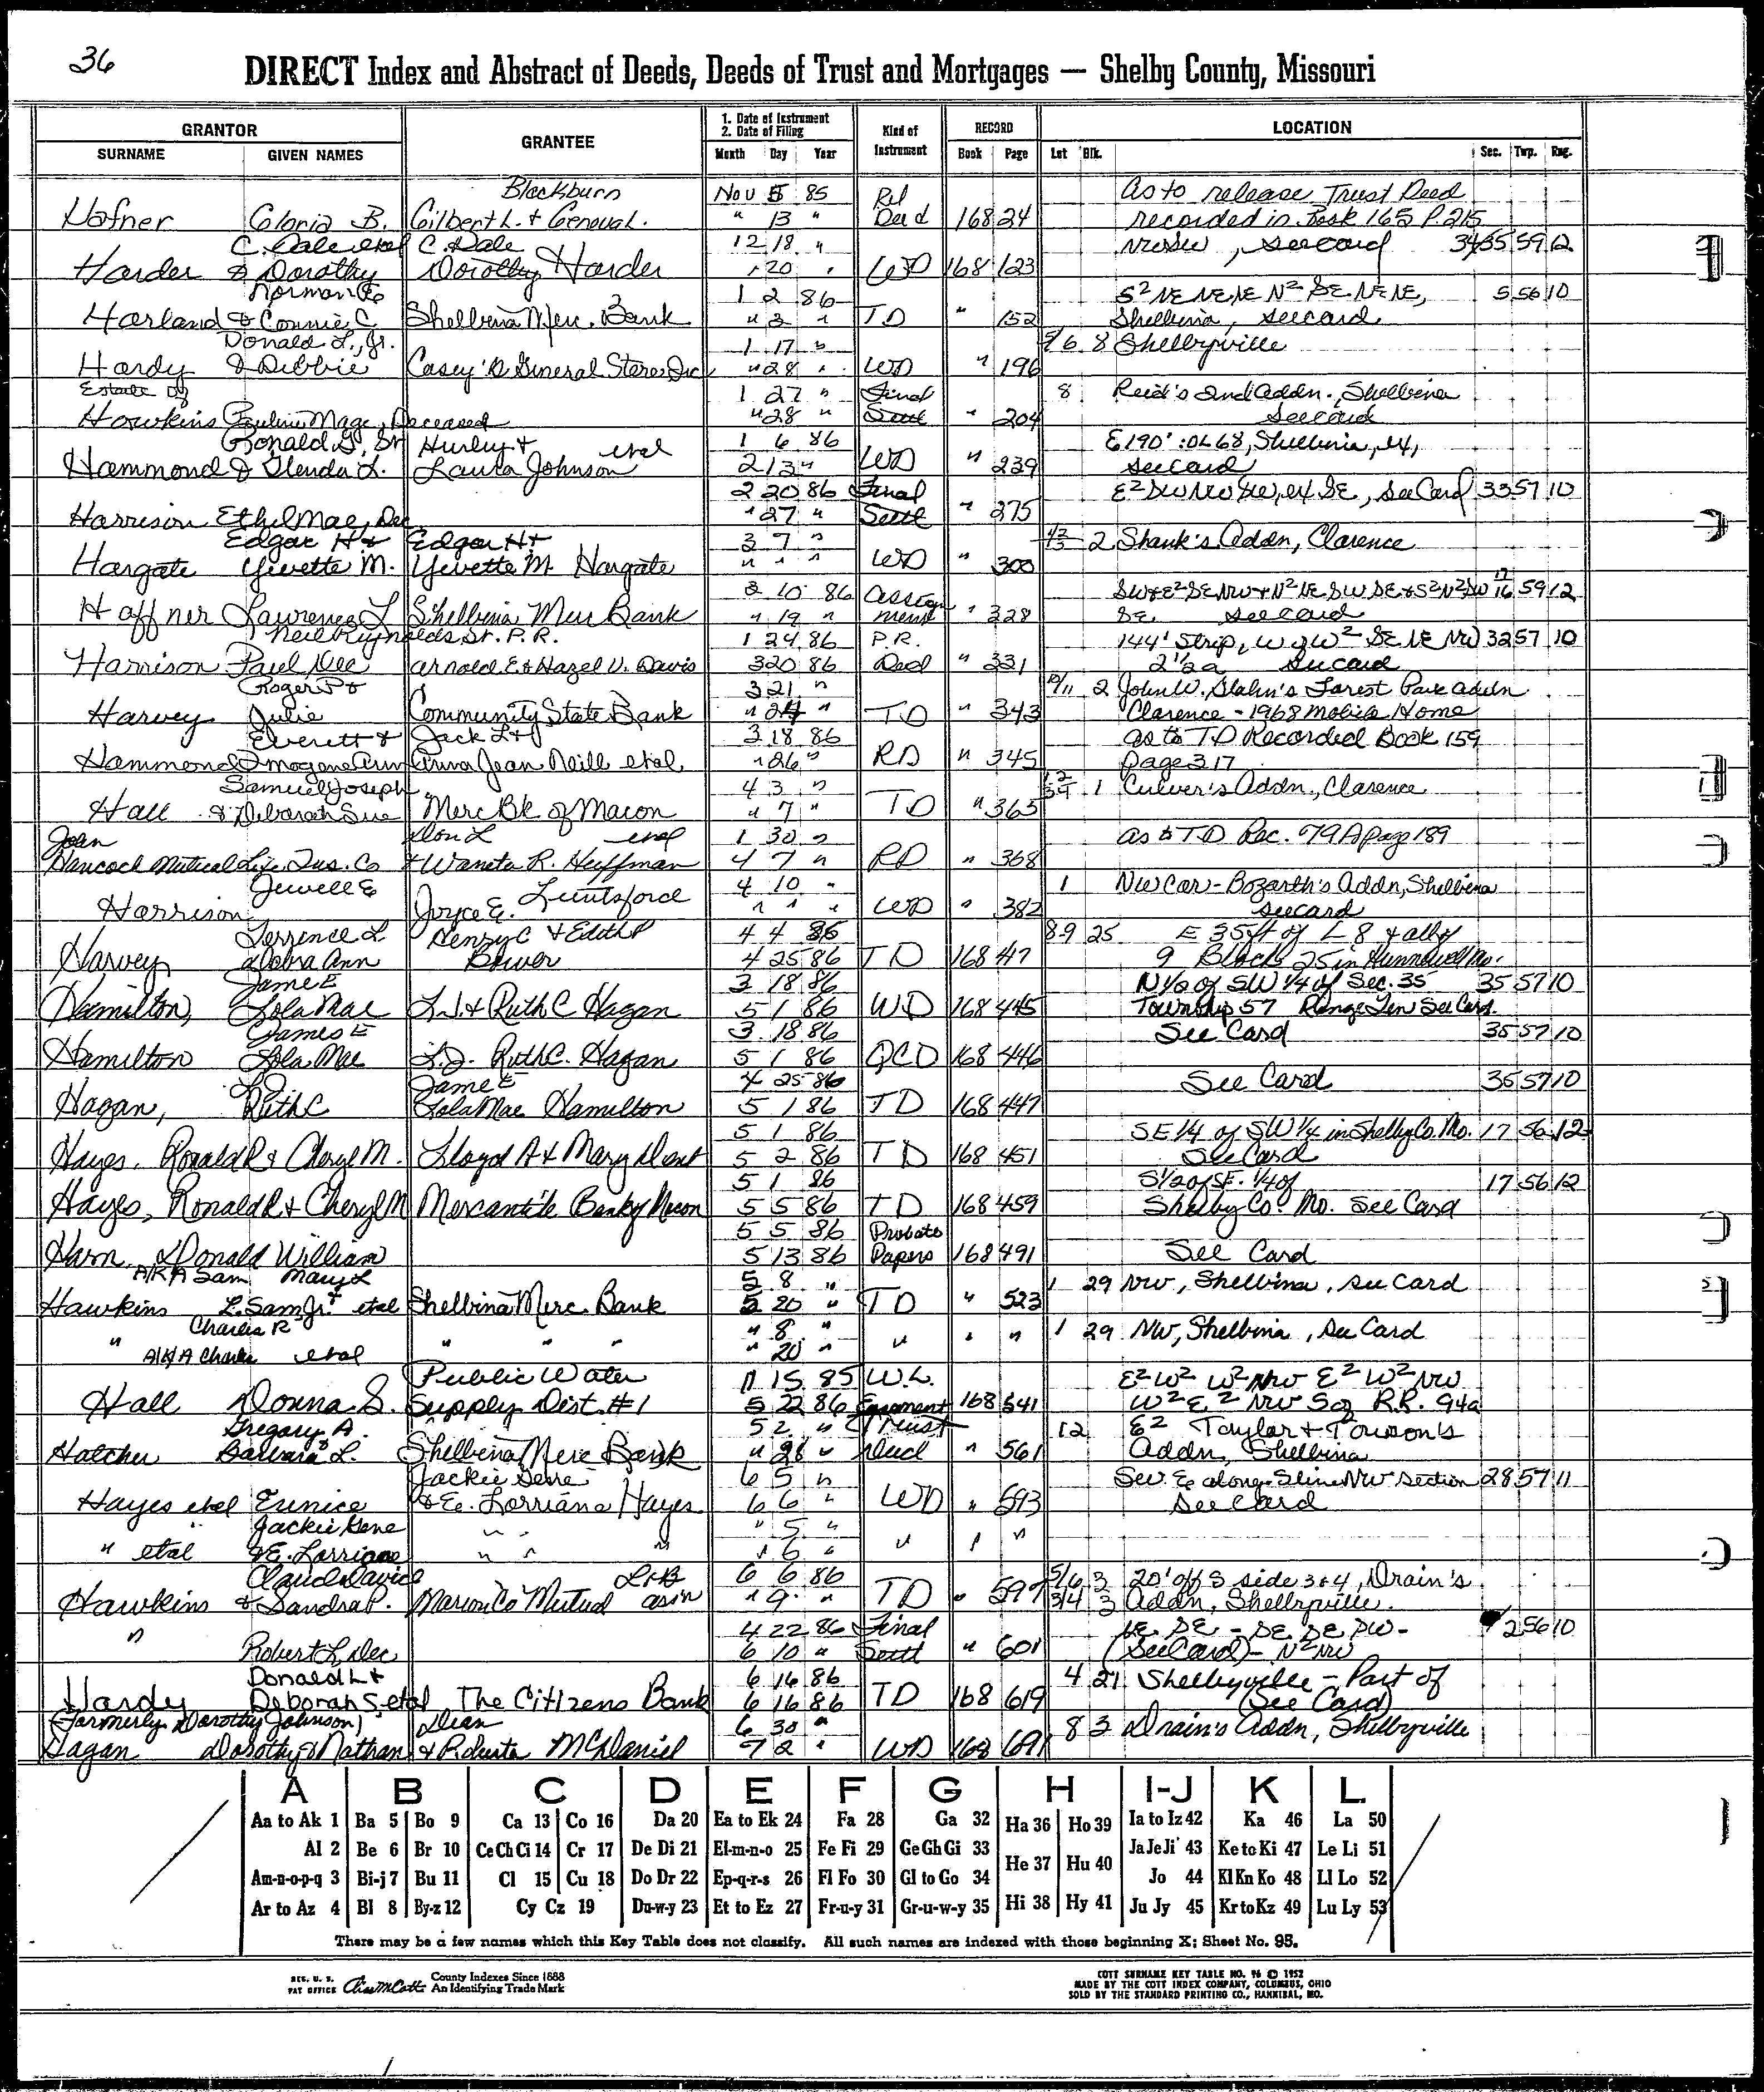 36
DIRECT Index and Abstract of Deeds, Deeds of Trust and Mortgages — Shelby County, Missouri
GRANTOR GRANTEE 1. Date of Instrument 2. Date of Filing Kind of Instrument RECORD LOCATION
SURNAME GIVEN NAMES Month Day Year Book Page Lot Blk. Sec. Twp. Rng.
Blackburn Nov 5 85 Rel As to release Trust Deed
Hafner Gloria B. Gilbert L. & Geneva L. " 13 " Deed 168 24 recorded in Book 165 P. 215
C. Dale etal C. Dale 12 18 " , see card 34 35 59 12
Harder & Dorothy Dorothy Harder " 20 " WD 168 123
Norman E 1 2 86 S² NE NE NE N² SE NE NE, 5 56 10
Harland & Connie C. Shelbina Merc. Bank " 3 " TD " 152 Shelbina, see card
Donald L., Jr. 1 17 " 5/6 8 Shelbyville
Hardy & Debbie Casey's General Stores Inc " 28 " WD " 196
Estate of 1 27 " Final 8 Reid's 2nd Addn., Shelbina
Hawkins Pauline Mage, Deceased " 28 " Sett " 204 see card
Ronald G, Sr Hurley & etal 1 6 86 E 190' : OL 68, Shelbina, ex,
Hammond & Glenda L. Laura Johnson 2 13 " WD " 239 see card
2 20 86 Final E² SW NW SW, ex SE, See Card 33 57 10
Harrison Ethel Mae, Dec " 27 " Settl " 275
Edgar H & Edgar H & 3 7 " 2 Shank's Addn, Clarence
Hargate Yivette M. Yivette M. Hargate " " " WD " 300
3 10 86 Assign SW & E² SE NW & N² NE SW SE & S² N² SW 17 16 59 12
Haffner Lawrence L Shelbina Merc Bank " 19 " ment " 328 SE. see card
Neil Reynolds Sr. P.R. 1 24 86 P.R. 144' Strip, W of W² SE NE NW 32 57 10
Harrison Paul Dec Arnold E & Hazel V. Davis 3 20 86 Deed " 331 2½ a see card
Roger P & 3 21 " 10/11 2 John W. Stahn's Forest Park Addn
Harvey Julie Community State Bank " 24 " TD " 343 Clarence - 1968 Mobile Home
Everett & Jack L & 3 18 86 as to TD Recorded Book 159
Hammond Imogene Ann Anna Jean Neill etal. " 26 " RD " 345 Page 317
Samuel Joseph 4 3 " 1 Culver's Addn., Clarence
Hall & Deborah Sue Merc Bk of Macon " 7 " TD " 365
John Don L etal 1 30 " as to TD Rec. 79A page 189
Hancock Mutual Life Ins. Co & Waneta R. Huffman 4 7 " RD " 368
Jewell E Luntsford 4 10 " 1 NW Cor - Bozarth's Addn, Shelbina
Harrison Joyce E. " " " WD " 382 see card
Terrence L. Henry C & Edith P 4 4 86 8 9 25 E 35 ft of L 8 & all of
Harvey Debra Ann Bower 4 25 86 TD 168 417 9 Block 25 in Hunnewell Mo.
James E 3 18 86 N 1/2 of SW 1/4 of Sec. 35 35 57 10
Hamilton, Lola Mae L.J. & Ruth C Hagan 5 1 86 WD 168 445 Township 57 Range Ten See Card.
James E 3 18 86 See Card 35 57 10
Hamilton Lola Mae L.J. Ruth C. Hagan 5 1 86 QCD 168 446
L.J. James E 4 25 86 See Card 35 57 10
Hagan, Ruth C Lola Mae Hamilton 5 1 86 TD 168 447
5 1 86 SE 1/4 of SW 1/4 in Shelby Co. Mo. 17 56 12
Hayes, Ronald R & Cheryl M. Lloyd A & Mary Dent 5 2 86 TD 168 451 See Card
5 1 86 S 1/2 of SE 1/4 of 17 56 12
Hayes, Ronald R & Cheryl M Mercantile Bank of Macon 5 5 86 TD 168 459 Shelby Co. Mo. See Card
5 5 86 Probate
Harn, Donald William 5 13 86 Papers 168 491 See Card
A/K/A Sam Mary L 5 8 " 1 29 NW, Shelbina, see Card
Hawkins L. Sam Jr. & etal Shelbina Merc. Bank 5 20 " TD " 523
Charles R " 8 " " " " 1 29 NW, Shelbina, see Card
" A/K/A Charles etal " " " " 20 "
Public Water 11 15 85 W.L. E² W² W² NW E² W² NW
Hall Donna S. Supply Dist. #1 5 22 86 Easement 168 541 W² E² NW S of R.R. 94a
Gregory A. 5 2 " Trust 12 E² Taylor & Towson's
Hatcher & Barbara L. Shelbina Merc Bank " 28 " Deed " 561 Addn, Shelbina
Jackie Gene 6 5 " SW. E along S line NW section 28 57 11
Hayes etal Eunice & E. Lorriana Hayes 6 6 " WD " 593 See Card
Jackie Gene " " 5 " " " "
" etal & E. Lorriane " " " " 6 "
Claude David 6 6 86 5/6 3 20' off S side 3 & 4, Drain's
Hawkins & Sandra P. Marion Co Mutual L & B asin " 9 " TD " 597 3/4 3 Addn, Shelbyville.
" 4 22 86 Final NE SE - SE SE SW - 2 56 10
Robert L, Dec 6 10 " Settl " 601 (See Card) - N² NW
Donald L & 6 16 86 4 21 Shelbyville - Part of
Hardy Deborah S. etal The Citizens Bank 6 16 86 TD 168 619 (See Card)
(Formerly Dorothy Johnson) Dean 6 30 " 8 3 Drain's Addn, Shelbyville
Hagan Dorothy & Nathan & Roberta McDaniel 7 2 " WD 168 691
A B C D E F G H I-J K L
Aa to Ak 1 Ba 5 Bo 9 Ca 13 Co 16 Da 20 Ea to Ek 24 Fa 28 Ga 32 Ha 36 Ho 39 Ia to Iz 42 Ka 46 La 50
Al 2 Be 6 Br 10 Ce Ch Ci 14 Cr 17 De Di 21 El-m-n-o 25 Fe Fi 29 Ge Gh Gi 33 He 37 Hu 40 Ja Je Ji 43 Ke to Ki 47 Le Li 51
Am-n-o-p-q 3 Bi-j 7 Bu 11 Cl 15 Cu 18 Do Dr 22 Ep-q-r-s 26 Fl Fo 30 Gl to Go 34 Jo 44 Kl Kn Ko 48 Ll Lo 52
Ar to Az 4 Bl 8 By-z 12 Cy Cz 19 Du-w-y 23 Et to Ez 27 Fr-u-y 31 Gr-u-w-y 35 Hi 38 Hy 41 Ju Jy 45 Kr to Kz 49 Lu Ly 53
There may be a few names which this Key Table does not classify. All such names are indexed with those beginning X; Sheet No. 95.
REG. U. S. PAT OFFICE County Indexes Since 1888 An Identifying Trade Mark
COTT SURNAME KEY TABLE NO. 96 © 1952
MADE BY THE COTT INDEX COMPANY, COLUMBUS, OHIO
SOLD BY THE STANDARD PRINTING CO., HANNIBAL, MO.